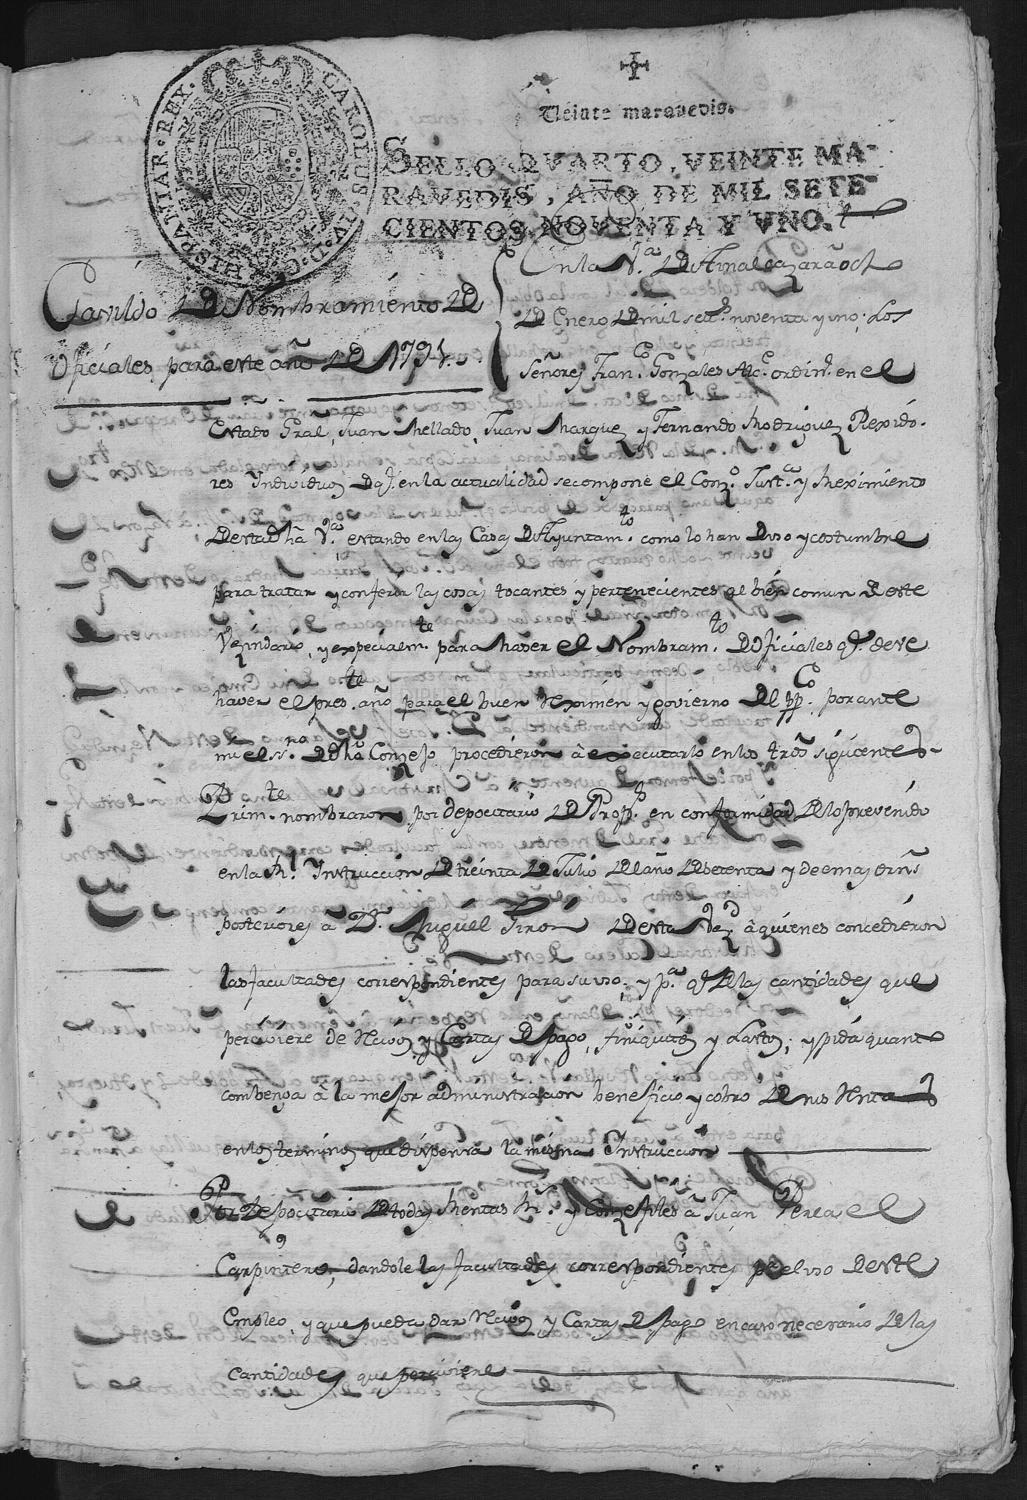 HISPANIAR·REX· CAROLUS·IV·D·G·
Veinte maravedis.
SELLO QVARTO, VEINTE MA-
RAVEDIS, AÑO DE MIL SETE-
CIENTOS NOVENTA Y VNO.
Cavildo de Nombramiento de
oficiales, para este año de 1791.
En la Vª. de Aznalcazar a och
de Enero de mil sett.s noventa y uno; Los
Señores Fran.co Gonzales Alc.e ordin.o en el
Estado Gral, Juan Mellado, Juan Marquez y Fernando Rhodriguez Rexido-
res Yndividuos de q.e en la actualidad se compone el Conz.o Just.a y Reximiento
de esta dha V.a estando en las Casas de Ayuntam.to como lo han de uso y costumbre
para tratar y conferir las cosas tocantes y pertenecientes al bien comun de este
Vezindario, y expecialm.te para haser el Nombram.to de oficiales q.e deve
haver el pres.te año para el buen reximen y govierno del pp.co por ante
mi el ss.no de dho Conzejo procedieron â executarlo en los trños siguientes
Prim.te nombraron por depocitario de Prop.s en conformidad de lo prevenido
en la Rl. Ynstruccion de treinta de Julio del año de setenta y demas ordñs
posteriores â Dn. Miguel Tiron de esta Vez.d â quienes concedieron
las facultades correspondientes para su uso, y p.a q.e de las cantidades que
perciviere de Recivos y Cartas de pago, finiquitos y Lastos; y pida quanto
combenga â la mejor administracion beneficio y cobro de sus Rentas
en los terminos que dispensa la misma Ynstruccion
Por Depocitario de todas Rentas Rs. y Conzejiles â Juan Perea el
Carpintero, dandole las facultades correspondientes p.a el uso de este
Empleo, y que pueda dar Recivos y Cartas de pago en caso necesario de las
Cantidades que perciviere